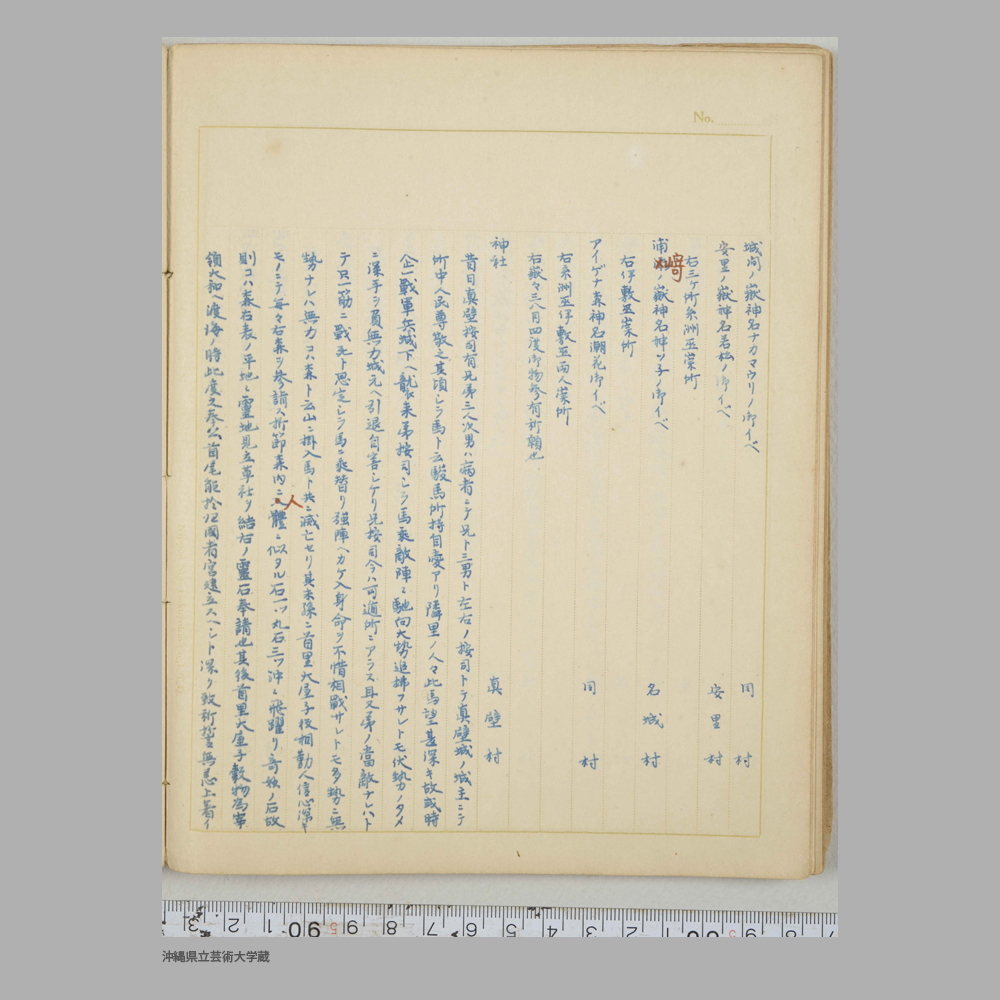 No.
城間ノ嶽神名ナカマウリノ御イベ 同村
安里ノ嶽神名若松ノ御イベ 安里村
右三ケ所糸洲巫崇所
浦崎ノ嶽神名神ツ子ノ御イベ 名城村
右伊敷巫崇所
アイゲナ森神名潮花御イベ 同村
右糸洲巫伊敷巫両人崇所
右嶽々三八月四度御物参有祈願也
神社 真壁村
昔日真壁按司有兄弟三人次男ハ病者ニテ兄ト三男ト左右ノ按司トテ真壁城ノ城主ニテ
所中人民尊敬之其頃シラ馬ト云駿馬所持自愛アリ隣里ノ人々此馬望甚深キ故或時
企戦軍兵城下ヘ襲来弟按司シラ馬乗敵陣ニ馳向大勢追拂フサレトモ伏勢ノタメ
ニ深手ヲ負無力城元ヘ引退自害シケリ兄按司今ハ可遁所ニアラス且又弟ノ當敵ナレハト
テ只一筋ニ戦死ト思定シラ馬ニ乗替リ強陣ヘカケ入身命ヲ不惜相戦サレトモ多勢ニ無
勢ナレハ無力コハ森ト云山ニ掛入馬ト共ニ滅亡セリ其末孫ニ首里大屋子役相勤人信心深キ
モノニテ毎々右森ヲ参詣ス折節森内ニ人體ニ似タル石一ツ丸石三ツ沖ニ飛躍リ奇妙ノ石故
則コハ森右表ノ平地ニ霊地見立草社ヲ結右ノ霊石奉請也其後首里大屋子穀物為宰
領大和ヘ渡海ノ時此度之奉公首尾能於仕國者宮建立スヘシト深ク致祈誓無恙上着イ
沖縄県立芸術大学蔵